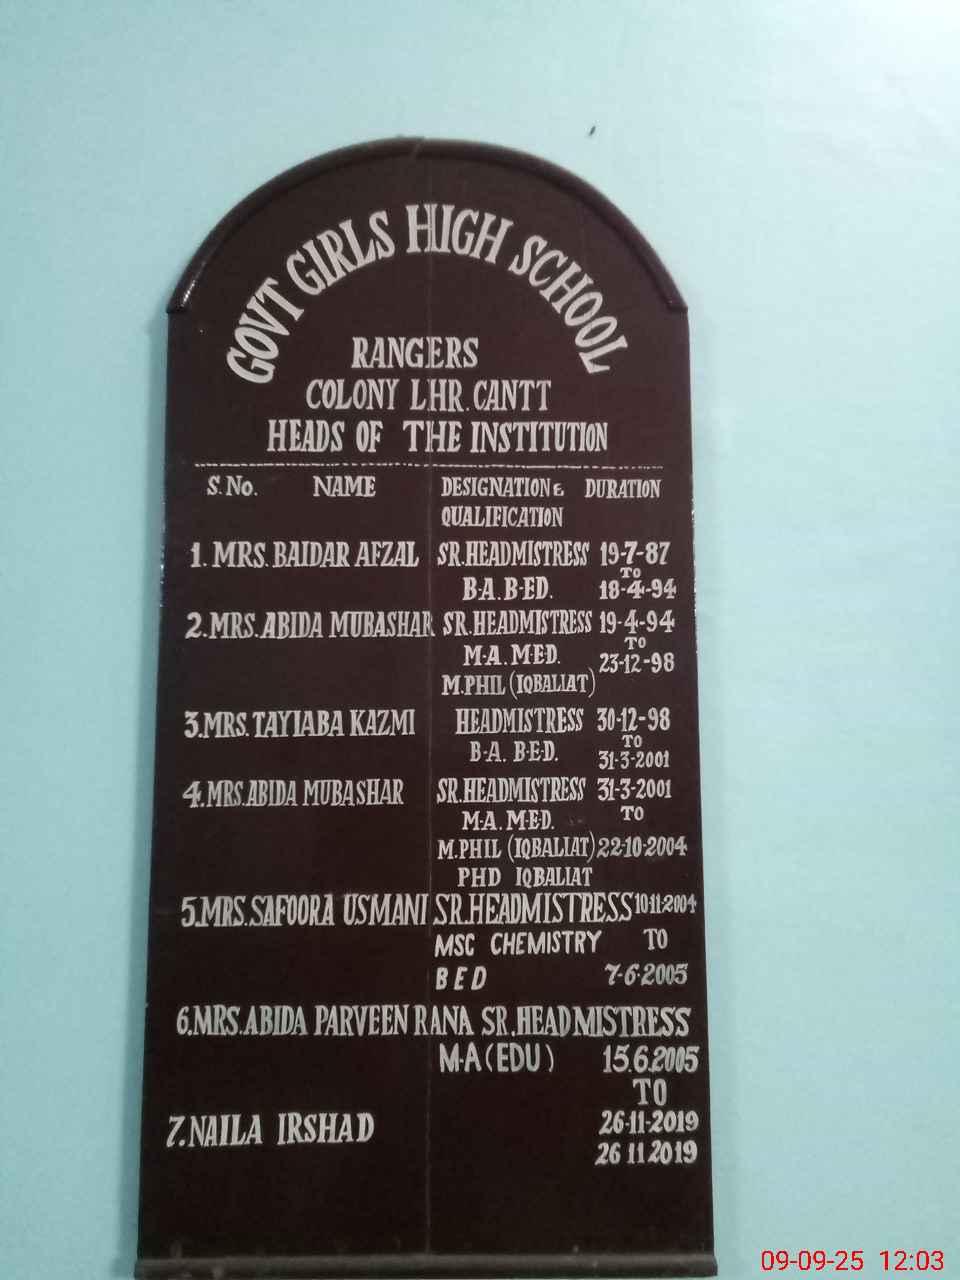 GOVT GIRLS HIGH SCHOOL
RANGERS
COLONY LHR. CANTT
HEADS OF THE INSTITUTION
S. No. NAME DESIGNATION & DURATION
QUALIFICATION
1. MRS. BAIDAR AFZAL SR. HEADMISTRESS 19-7-87
TO
B.A. B-ED. 18-4-94
2. MRS. ABIDA MUBASHAR SR. HEADMISTRESS 19-4-94
TO
M-A. M-ED. 23-12-98
M.PHIL (IQBALIAT)
3. MRS. TAYIABA KAZMI HEADMISTRESS 30-12-98
TO
B-A. B-E-D. 31-3-2001
4. MRS. ABIDA MUBASHAR SR. HEADMISTRESS 31-3-2001
M-A. M-E-D. TO
M.PHIL (IQBALIAT) 22-10-2004
PHD IQBALIAT
5. MRS. SAFOORA USMANI SR. HEADMISTRESS 10-11-2004
MSC CHEMISTRY TO
BED 7-6-2005
6. MRS. ABIDA PARVEEN RANA SR. HEADMISTRESS
M-A (EDU) 15.6.2005
TO
26-11-2019
7. NAILA IRSHAD 26 11 2019
09-09-25 12:03